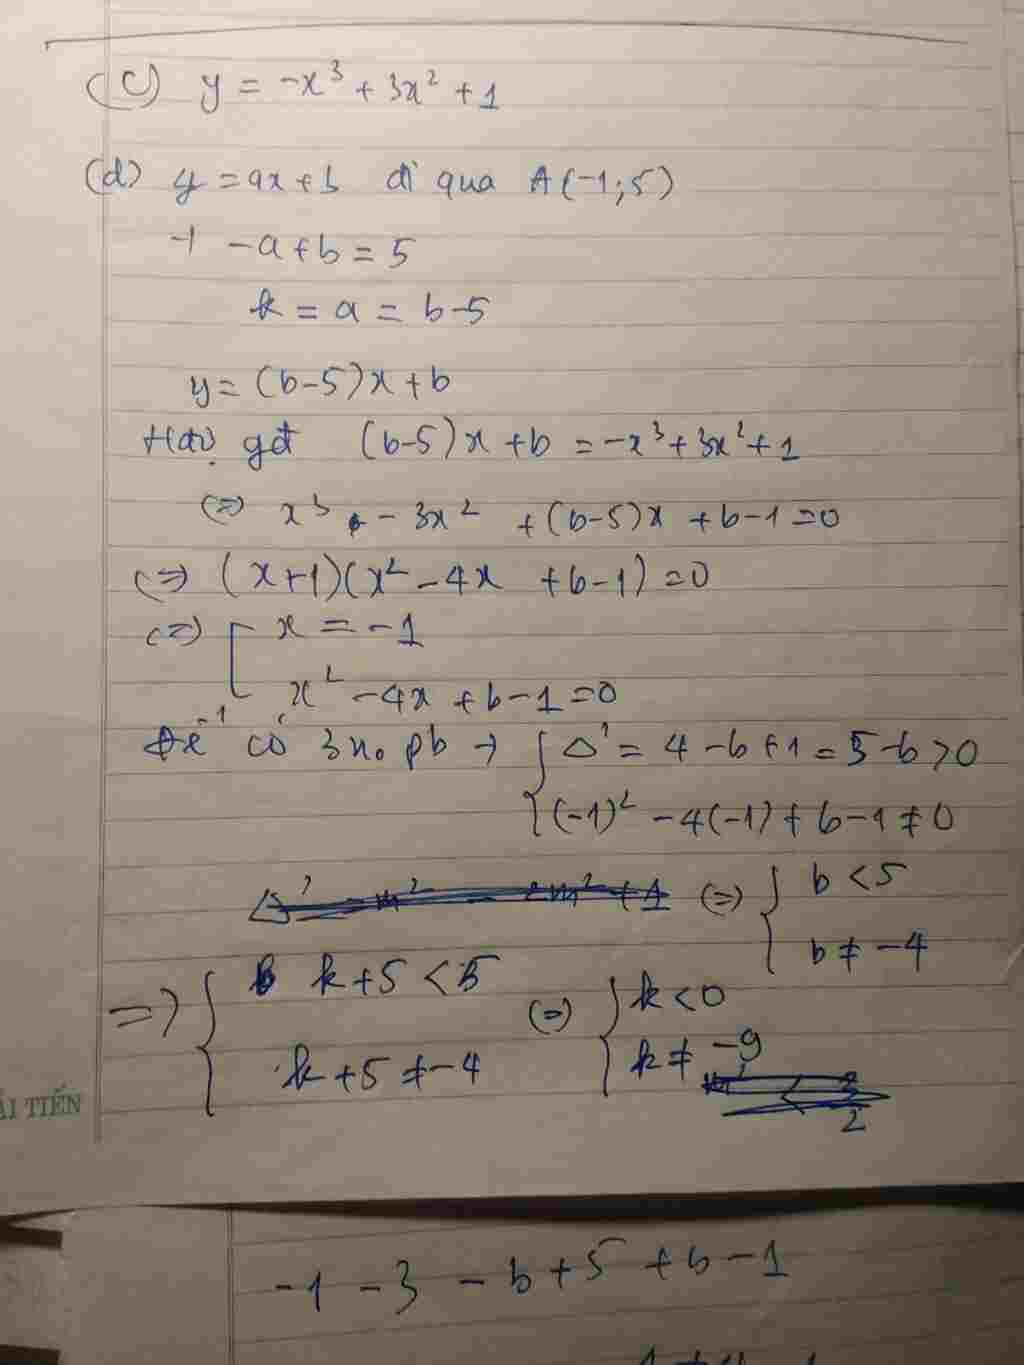 (C) y = -x³ + 3x² + 1
(d) y = ax + b đi qua A(-1; 5)
→ -a + b = 5
k = a = b-5
y = (b-5)x + b
Hđộ gđ (b-5)x + b = -x³ + 3x² + 1
(=) x³ - 3x² + (b-5)x + b - 1 = 0
(=) (x+1)(x² - 4x + b - 1) = 0
(=) [ x = -1
x² - 4x + b - 1 = 0
Để có 3 no pb → { Δ' = 4 - b + 1 = 5 - b > 0
(-1)² - 4(-1) + b - 1 ≠ 0
(=) { b < 5
b ≠ -4
=> { k + 5 < 5 (=) { k < 0
k + 5 ≠ -4 k ≠ -9
2
ẢI TIẾN
-1 - 3 - b + 5 + b - 1